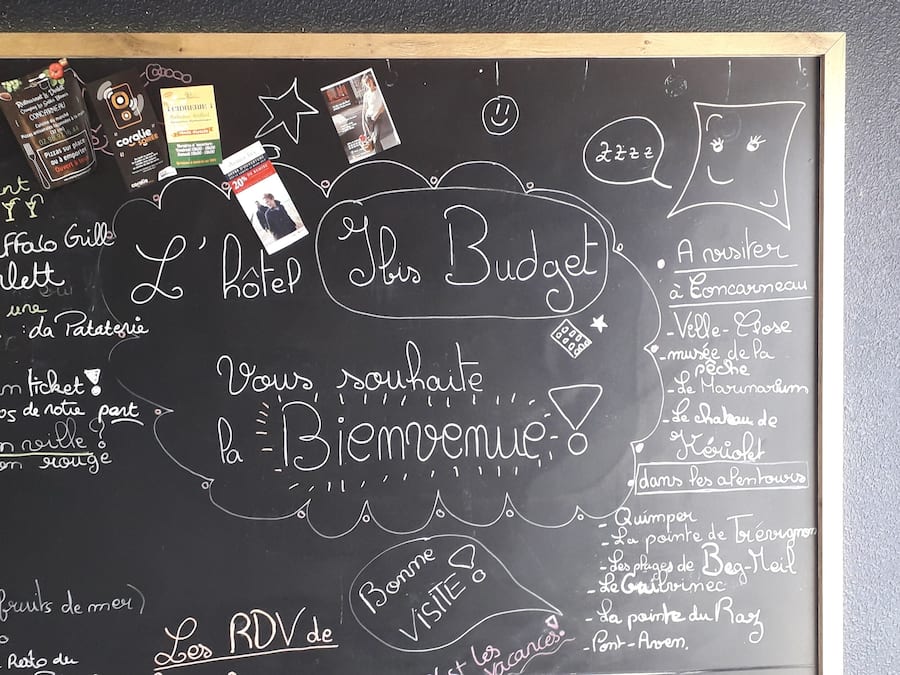 CONCARNEAU
Pizzas sur place
ou à emporter
coralie
20% DE REMISE
zzzz
L'hôtel Ibis Budget
Vous souhaite
la Bienvenue!
A visiter
à Concarneau
- Ville-Close
- musée de la
pêche
- Le Marinarium
- Le chateau de
Kériolet
dans les alentours
- Quimper
- La pointe de Trévignon
- Les plages de Beg-Meil
- Le Guilvinec
- La pointe du Raz
- Pont-Aven.
Grill
une
: da Pataterie
ticket!
de notre part
ville!
rouge
fruits de mer)
Resto du
Les RDV de
Bonne
VISITE!
les
vacances!